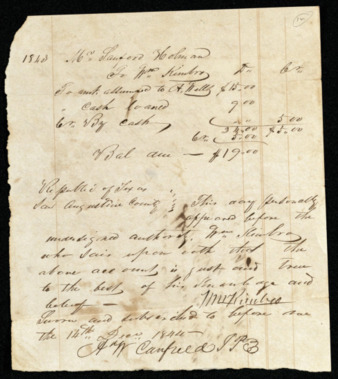 1843 Mr Sanford Holman
To Wm Kimbro Dr Cr
To amt assumed to A Wells $15.00
" Cash loaned 9.00
Cr By Cash 5.00
24.00 $5.00
Cr 5.00
Bal due — $19.00
Republic of Texas
San Augustine County } This day personally
appeared before the
undersigned authority Wm Kimbro
who says upon oath that the
above account is just and true
to the best of his knowledge and
belief —
Wm Kimbro
Sworn and subscribed to before me
the 14th Decr 1844
A W Canfield J P